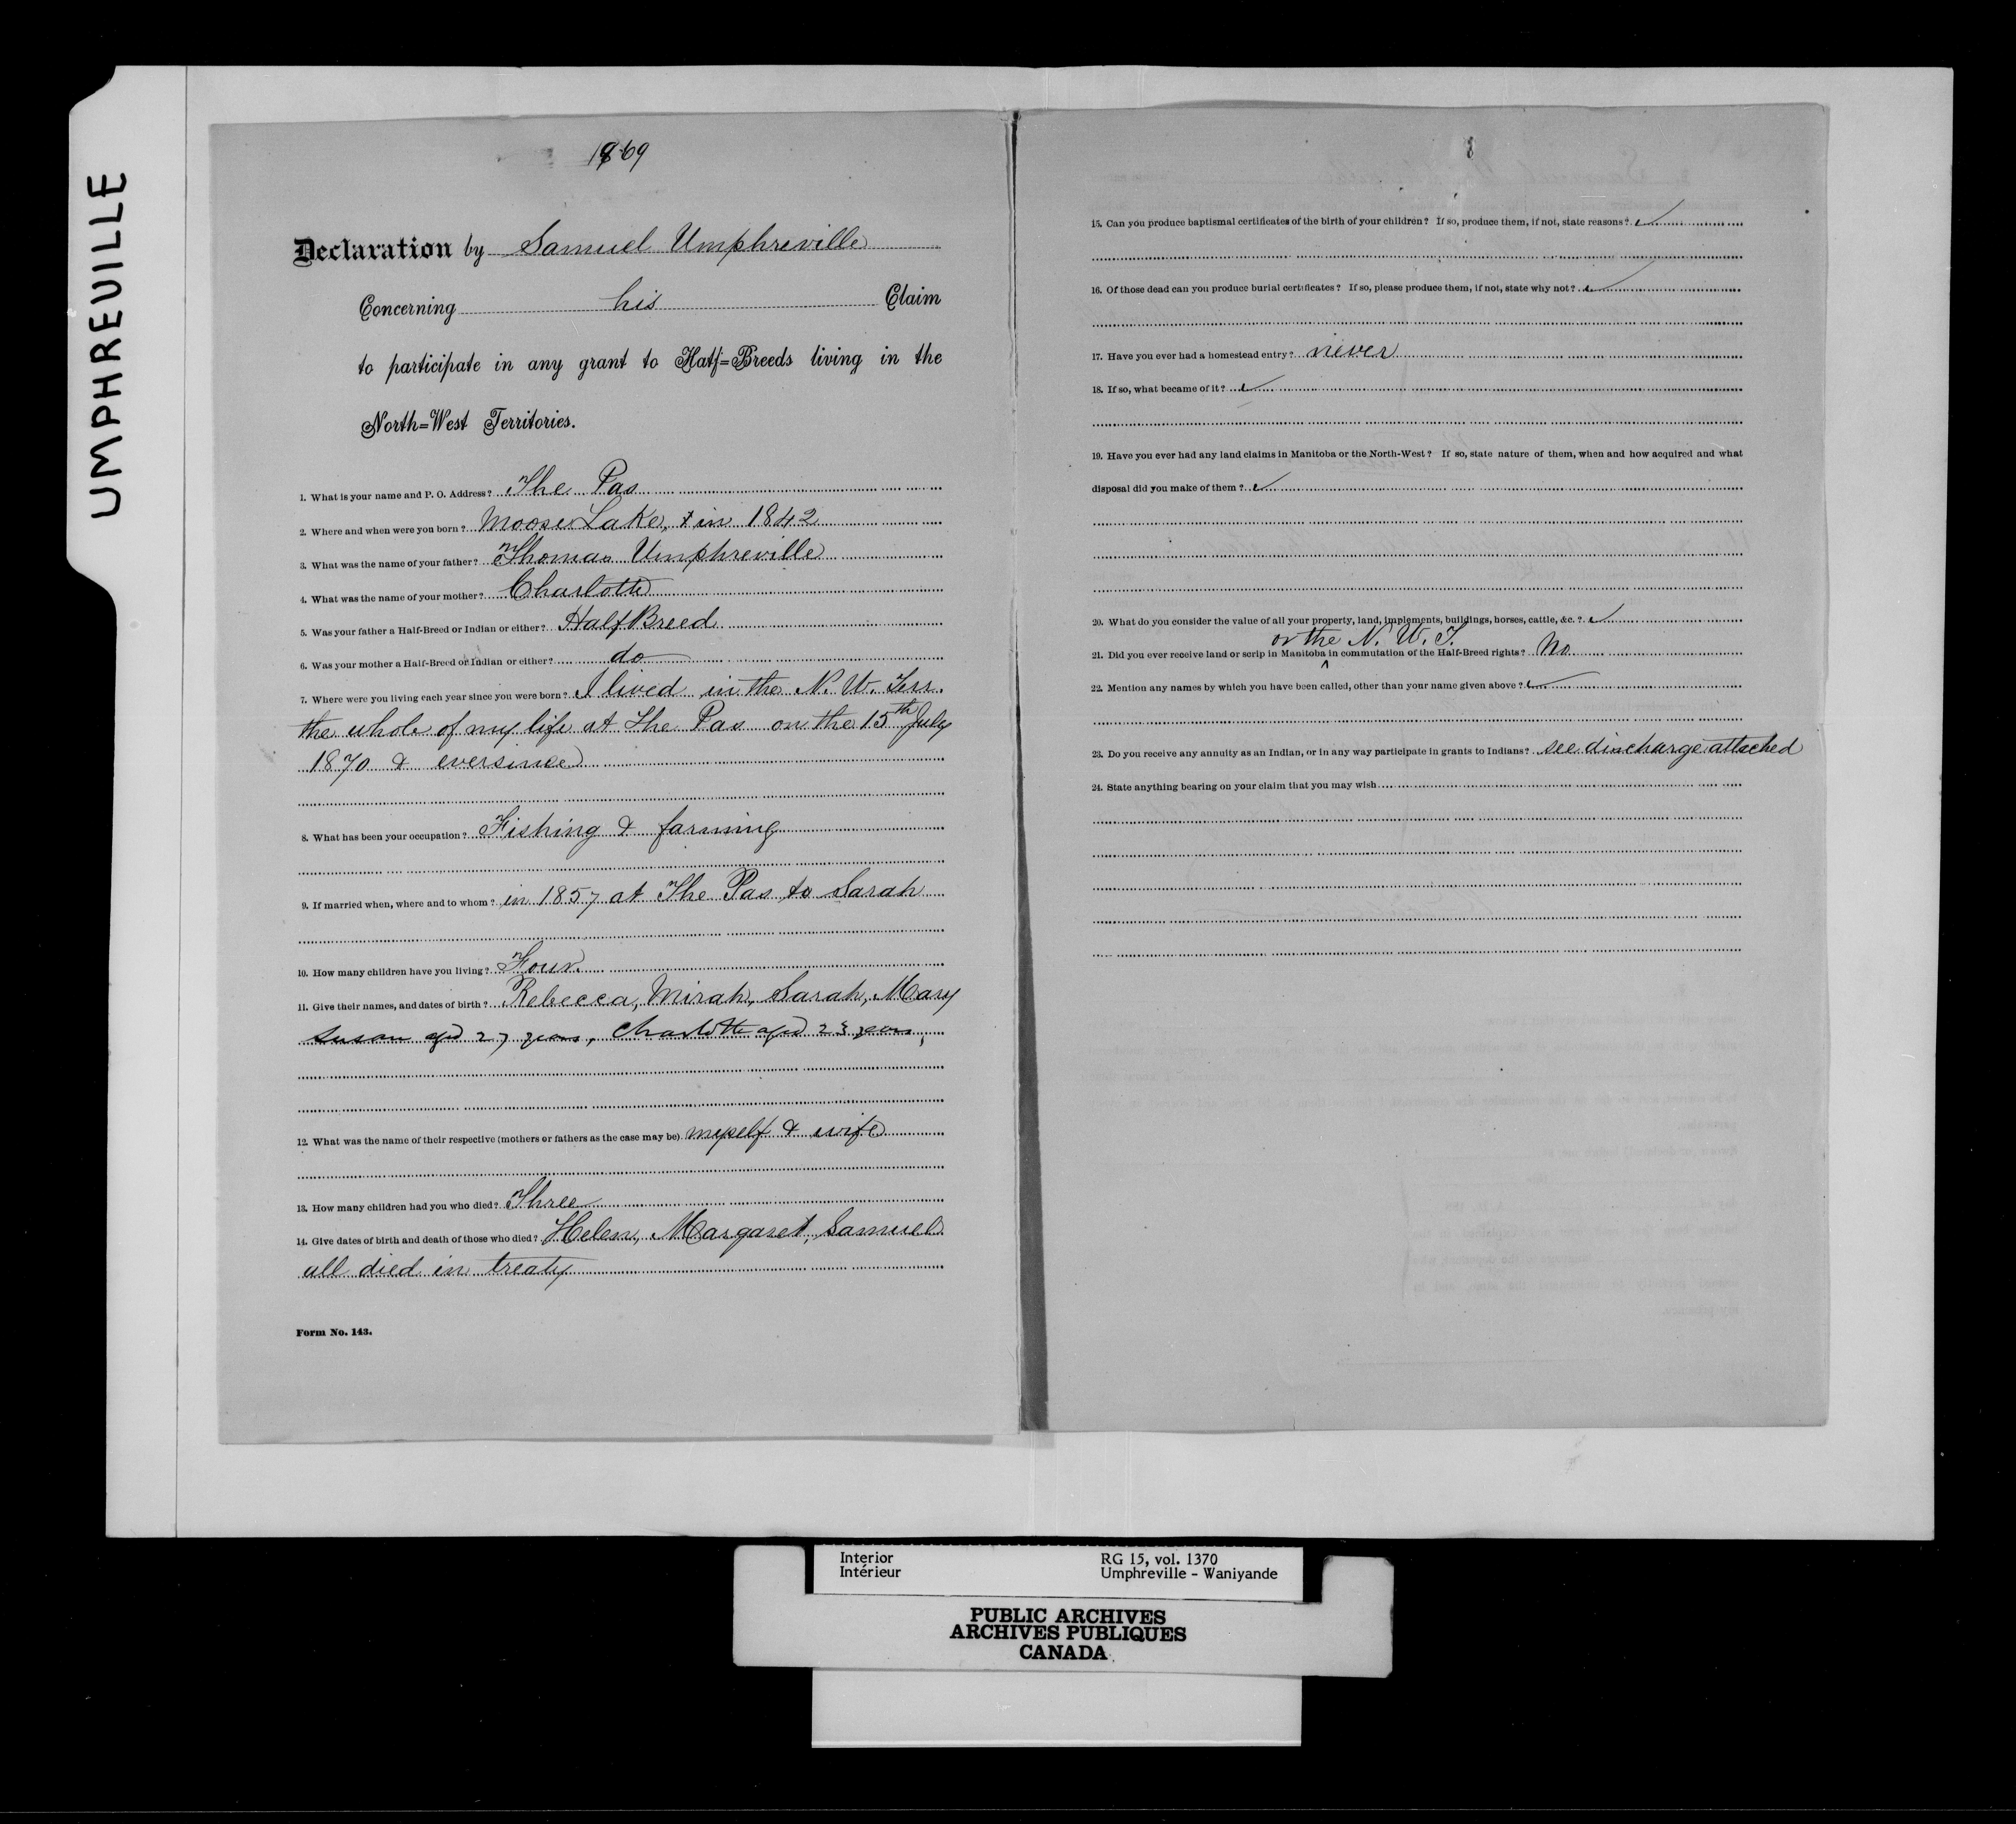 UMPHREVILLE
1869
Declaration by Samuel Umphreville
Concerning his Claim
to participate in any grant to Half=Breeds living in the
North=West Territories.
1. What is your name and P. O. Address? The Pas
2. Where and when were you born? Moose Lake, in 1842
3. What was the name of your father? Thomas Umphreville
4. What was the name of your mother? Charlotte
5. Was your father a Half-Breed or Indian or either? Half Breed
6. Was your mother a Half-Breed or Indian or either? do
7. Where were you living each year since you were born? I lived in the N. W. Terr.
the whole of my life at the Pas on the 15th July
1870 & ever since
8. What has been your occupation? Fishing & farming
9. If married when, where and to whom? in 1857 at The Pas to Sarah
10. How many children have you living? Four
11. Give their names, and dates of birth? Rebecca, Mirah, Sarah, Mary
Susan aged 27 years, Charlotte aged 23 years,
12. What was the name of their respective (mothers or fathers as the case may be) myself & wife
13. How many children had you who died? Three
14. Give dates of birth and death of those who died? Helen, Margaret, Samuel
all died in treaty
Form No. 143.
15. Can you produce baptismal certificates of the birth of your children? If so, produce them, if not, state reasons?
16. Of those dead can you produce burial certificates? If so, please produce them, if not, state why not?
17. Have you ever had a homestead entry? never
18. If so, what became of it?
19. Have you ever had any land claims in Manitoba or the North-West? If so, state nature of them, when and how acquired and what
disposal did you make of them?
20. What do you consider the value of all your property, land, implements, buildings, horses, cattle, &c.?
or the N. W. T.
21. Did you ever receive land or scrip in Manitoba ^ in commutation of the Half-Breed rights? No
22. Mention any names by which you have been called, other than your name given above?
23. Do you receive any annuity as an Indian, or in any way participate in grants to Indians? see discharge attached
24. State anything bearing on your claim that you may wish
Interior RG 15, vol. 1370
Intérieur Umphreville - Waniyande
PUBLIC ARCHIVES
ARCHIVES PUBLIQUES
CANADA